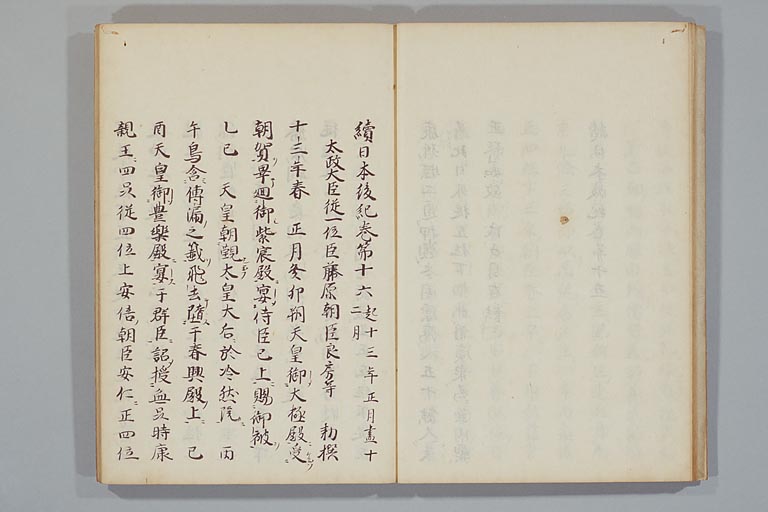 續日本後紀卷第十六 起十三年正月盡十二月
太政大臣從一位臣藤原朝臣良房等 勅撰
十三年春正月癸卯朔天皇御大極殿受
朝賀畢廻御紫宸殿宴侍臣已上賜御被
乙巳天皇朝覲太皇大后於冷然院 丙
午鳥含傳漏之籤飛去隨于春興殿上 己
酉天皇御豊樂殿宴于群臣詔授 時康
親王四品從四位上安倍朝臣安仁正四位